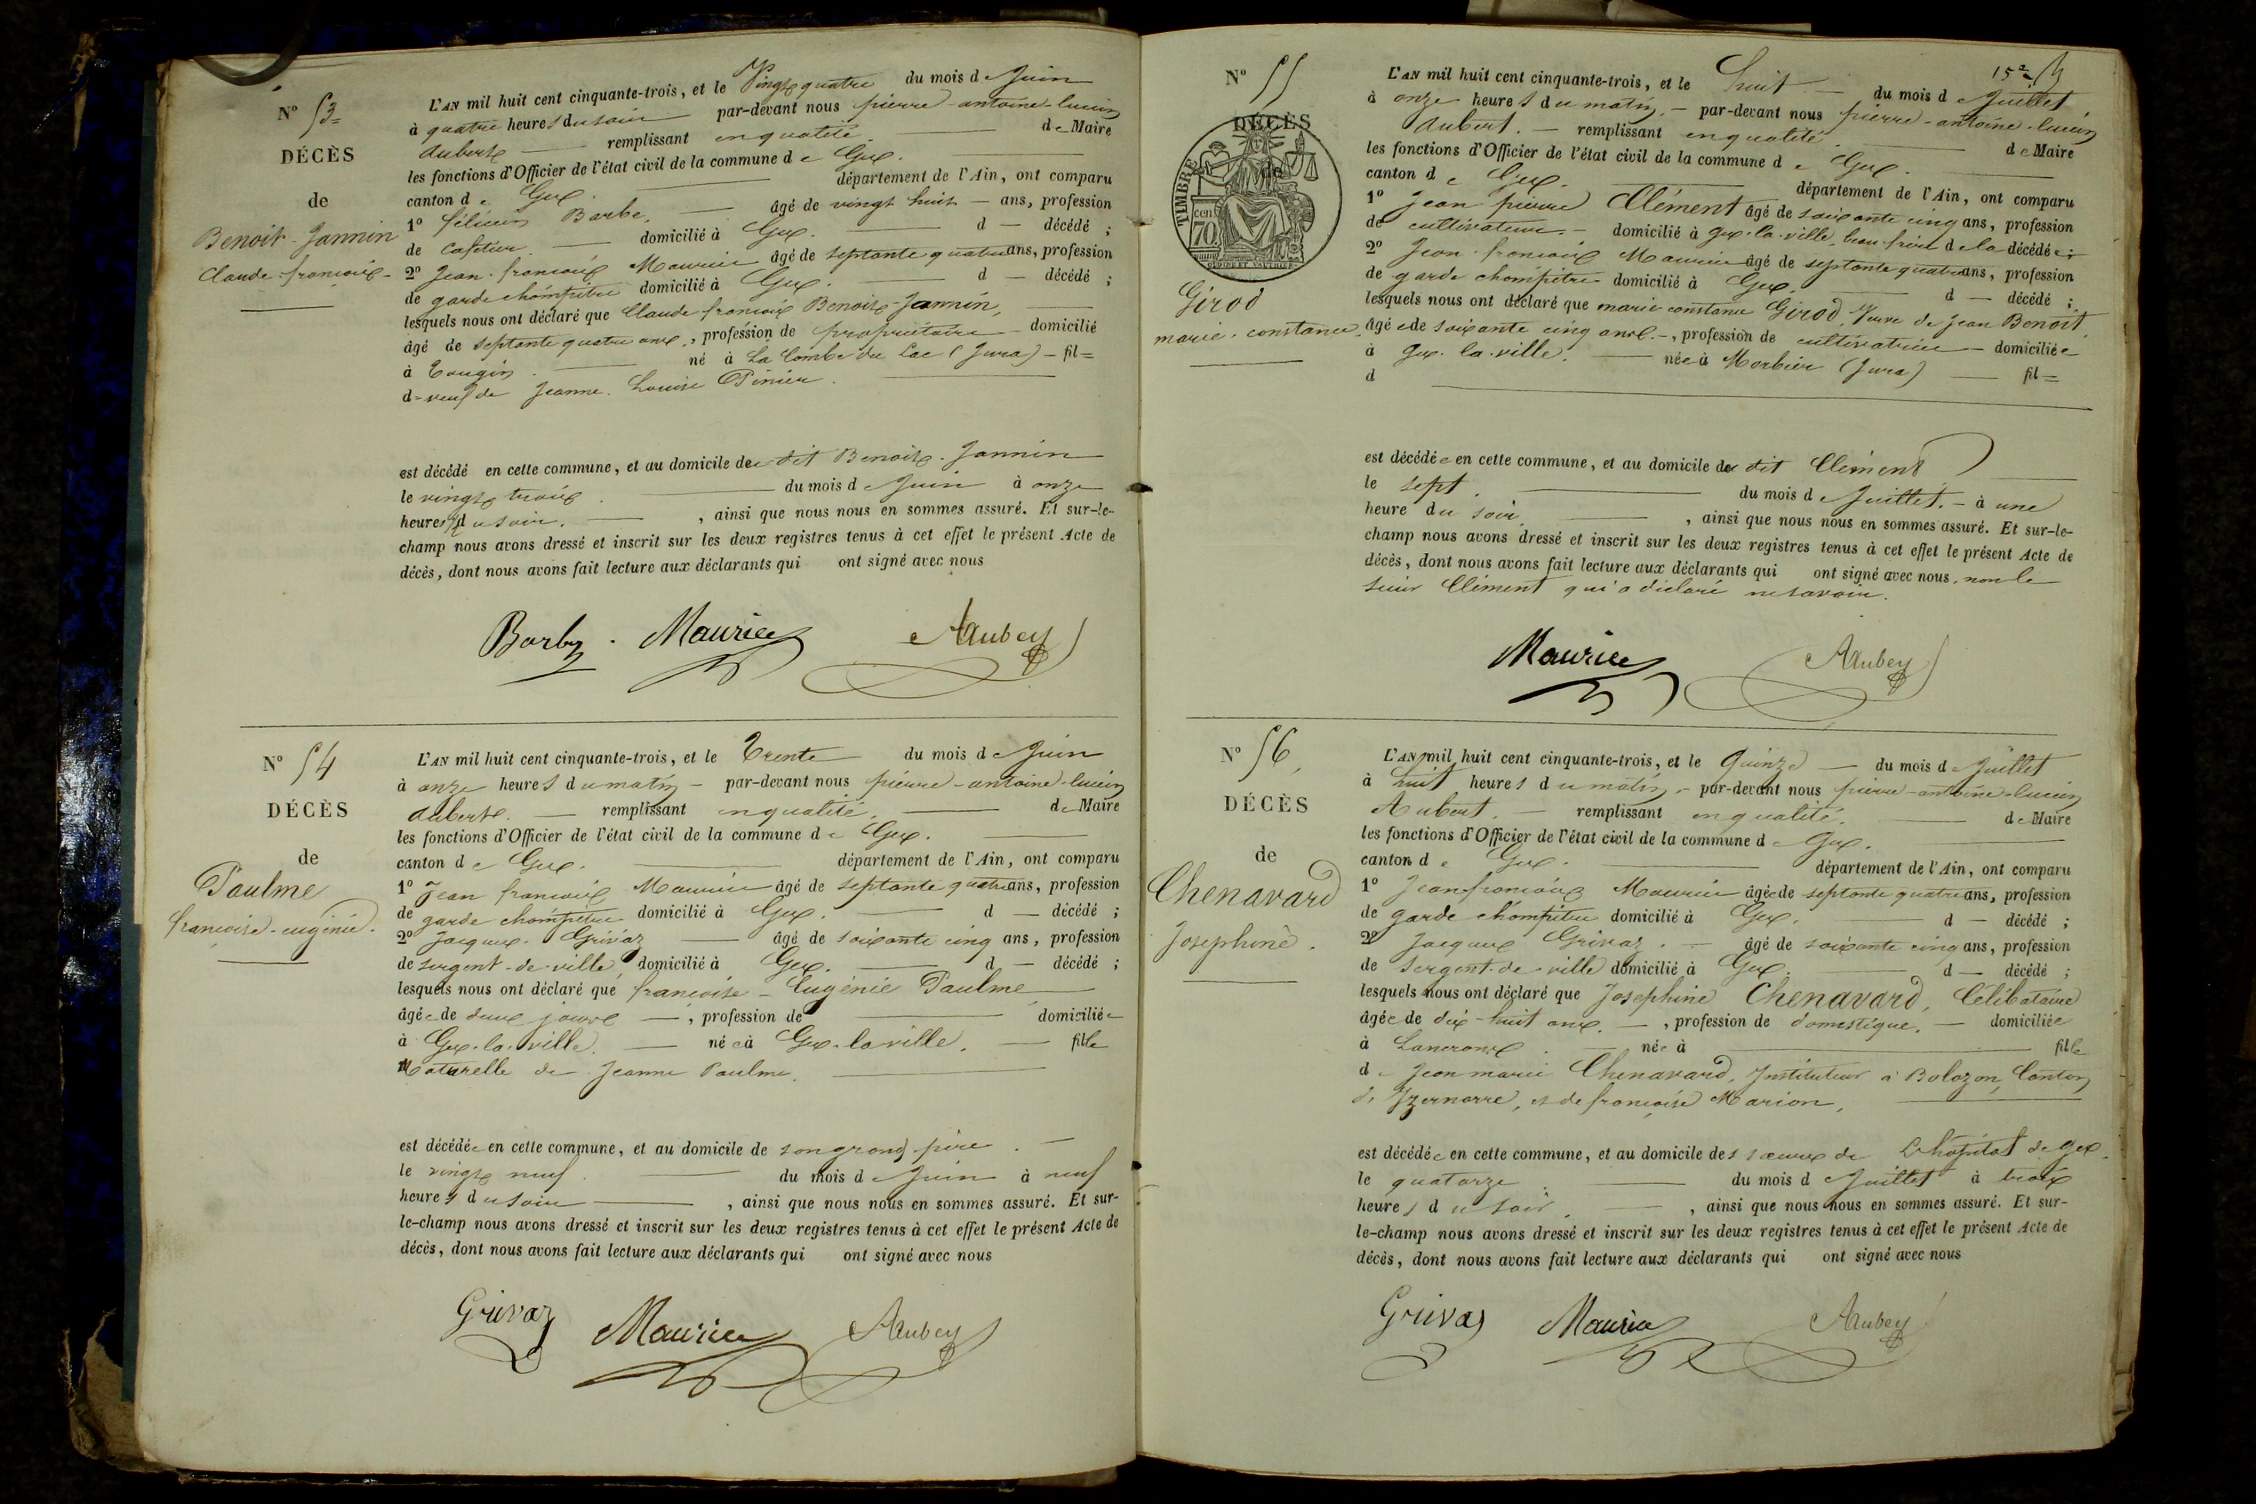 N° 53=
DÉCÈS
de
Benoit-Jannin
Claude françois-
L'AN mil huit cent cinquante-trois, et le Vingt quatre du mois de Juin
à quatre heures du soir par-devant nous pierre-antoine-lucien
Aubert remplissant en qualité de Maire
les fonctions d'Officier de l'état civil de la commune de Gex.
canton de Gex. département de l'Ain, ont comparu
1° félicien Barbe, âgé de vingt huit ans, profession
de Cafetier domicilié à Gex. d — décédé ;
2° Jean-françois Maurier âgé de septante quatre ans, profession
de garde champêtre domicilié à Gex. d — décédé ;
lesquels nous ont déclaré que Claude françois Benoit-Jannin,
âgé de septante quatre ans, profession de propriétaire domicilié
à Tougin. né à La Combe du Lac (Jura) - fil=
d= veuf de Jeanne Louise
est décédé en cette commune, et au domicile de dit Benoit-Jannin
le vingt trois du mois de Juin à onze
heures du soir. , ainsi que nous nous en sommes assuré. Et sur-le-
champ nous avons dressé et inscrit sur les deux registres tenus à cet effet le présent Acte de
décès, dont nous avons fait lecture aux déclarants qui ont signé avec nous
Maurier
N° 54
DÉCÈS
de
Paulme
françoise-eugénie.
L'AN mil huit cent cinquante-trois, et le Trente du mois de Juin
à onze heures du matin - par-devant nous pierre-antoine-lucien
Aubert. — remplissant en qualité de Maire
les fonctions d'Officier de l'état civil de la commune de Gex.
canton de Gex. département de l'Ain, ont comparu
1° Jean françois Maurier âgé de septante quatre ans, profession
de garde champêtre domicilié à Gex. d — décédé ;
2° Jacques Grivaz âgé de soixante cinq ans, profession
de sergent-de-ville domicilié à Gex. d — décédé ;
lesquels nous ont déclaré que françoise-Eugénie Paulme
âgée de deux jours —, profession de domiciliée
à Gex-la-ville. née à Gex-la ville. fille
Naturelle de Jeanne Paulme.
est décédée en cette commune, et au domicile de son grand père.
le vingt neuf. du mois de Juin à neuf
heures du soir , ainsi que nous nous en sommes assuré. Et sur-
le-champ nous avons dressé et inscrit sur les deux registres tenus à cet effet le présent Acte de
décès, dont nous avons fait lecture aux déclarants qui ont signé avec nous
Grivaz Maurier
15
N° 55
DÉCÈS
de
TIMBRE
cen
70
Girod
marie-constance
L'AN mil huit cent cinquante-trois, et le huit — du mois de Juillet
à onze heures du matin, - par-devant nous pierre-antoine-lucien
Aubert. — remplissant en qualité de Maire
les fonctions d'Officier de l'état civil de la commune de Gex.
canton de Gex. département de l'Ain, ont comparu
1° Jean pierre Clément âgé de soixante cinq ans, profession
de cultivateur. - domicilié à Gex-la-ville, beau-frère de la décédée ;
2° Jean-françois Maurier âgé de septante quatre ans, profession
de garde champêtre domicilié à Gex. d — décédé ;
lesquels nous ont déclaré que marie constance Girod, Veuve de Jean Benoit
âgée de soixante cinq ans. -, profession de cultivatrice domiciliée
à Gex-la-ville. née à Morbier (Jura) — fil=
d
est décédée en cette commune, et au domicile de dit Clément
le sept. du mois de Juillet. - à une
heure du soir. , ainsi que nous nous en sommes assuré. Et sur-le-
champ nous avons dressé et inscrit sur les deux registres tenus à cet effet le présent Acte de
décès, dont nous avons fait lecture aux déclarants qui ont signé avec nous, non le
sieur Clément qui a déclaré ne savoir.
Maurier
N° 56,
DÉCÈS
de
Chenavard
Josephine.
L'AN mil huit cent cinquante-trois, et le Quinze — du mois de Juillet
à huit heures du matin. - par-devant nous pierre-antoine-lucien
Aubert. — remplissant en qualité. de Maire
les fonctions d'Officier de l'état civil de la commune de Gex.
canton de Gex. département de l'Ain, ont comparu
1° Jean françois Maurier âgé de septante quatre ans, profession
de garde champêtre domicilié à Gex. d — décédé ;
2° Jacques Grivaz. — âgé de soixante cinq ans, profession
de sergent-de-ville domicilié à Gex. d — décédé ;
lesquels nous ont déclaré que Josephine Chenavard, Célibataire
âgée de dix-huit ans. —, profession de domestique. — domiciliée
à Lancrans. née à fille
de Jean marie Chenavard, Instituteur à Bolozon, Canton
d'Yzernorre, et de françoise Marion,
est décédée en cette commune, et au domicile des sœurs de L'hôpital de Gex.
le quatorze. du mois de Juillet à trois
heures du soir. , ainsi que nous nous en sommes assuré. Et sur-
le-champ nous avons dressé et inscrit sur les deux registres tenus à cet effet le présent Acte de
décès, dont nous avons fait lecture aux déclarants qui ont signé avec nous
Grivaz Maurier